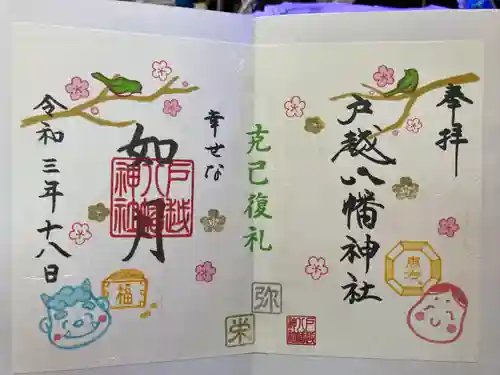 奉拝
戸越八幡神社
恵方
克己復礼
弥
栄
幸せな
如月
戸越
八幡
神社
福
令和三年十八日